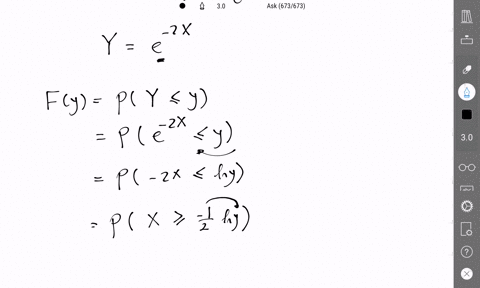 3.0 Ask (673/673)
Y = e^{-2X}
F(y) = P(Y ≤ y)
= P(e^{-2X} ≤ y)
= P(-2X ≤ ln y)
= P(X ≥ -1/2 ln y)
3.0